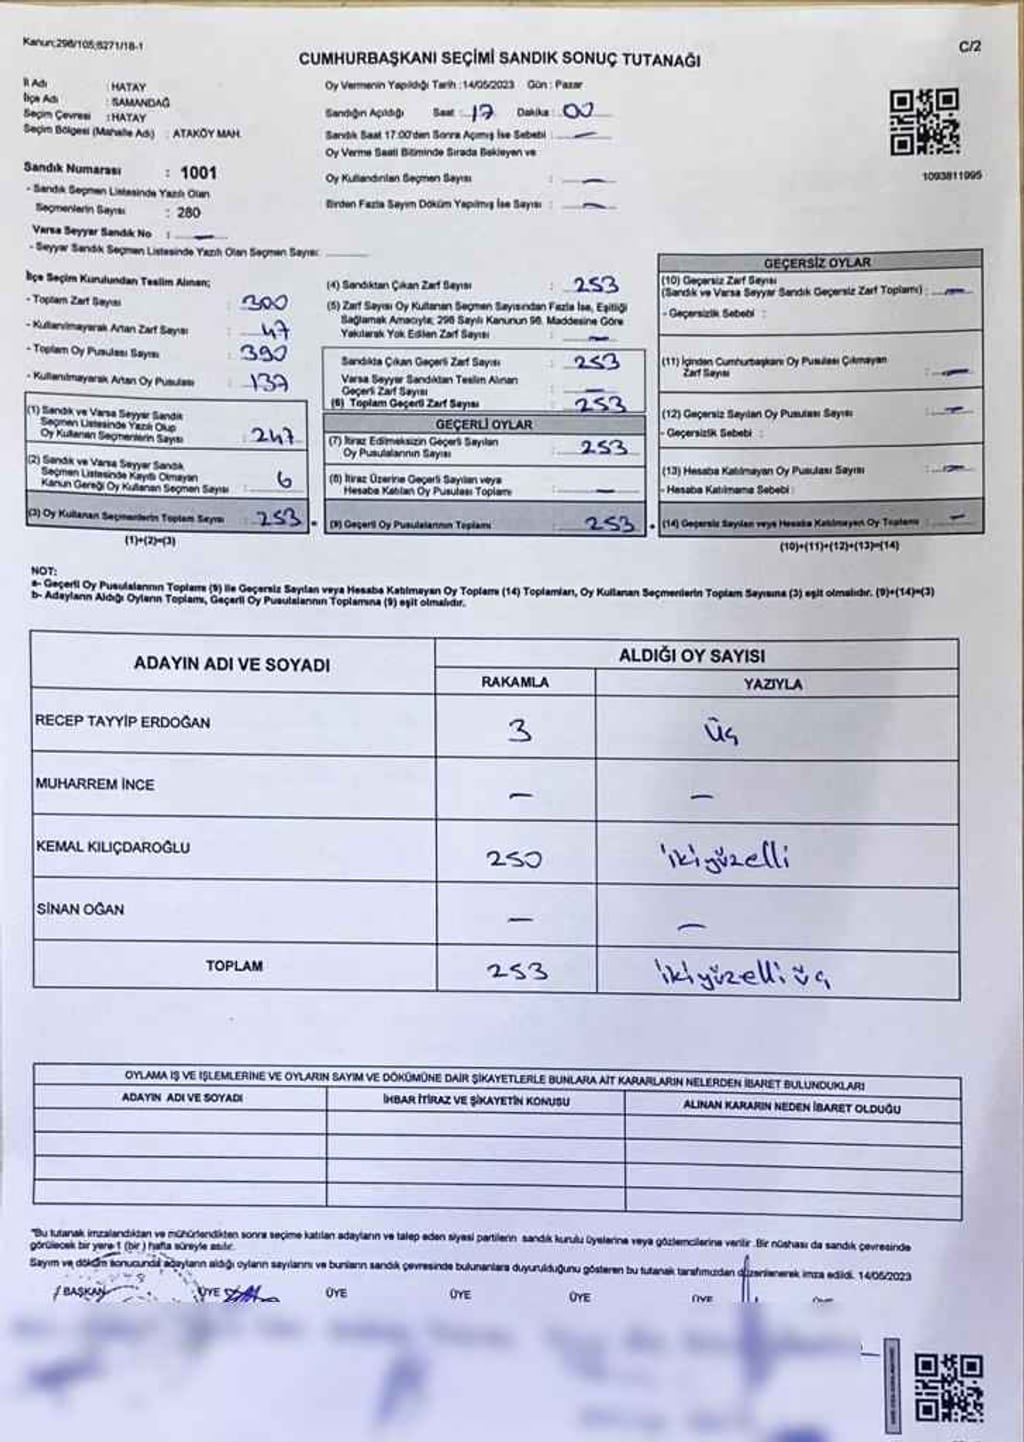 Kanun:298/105;6271/18-1
C/2
CUMHURBAŞKANI SEÇİMİ SANDIK SONUÇ TUTANAĞI
İl Adı : HATAY
İlçe Adı : SAMANDAĞ
Seçim Çevresi : HATAY
Seçim Bölgesi (Mahalle Adı) : ATAKÖY MAH.
Sandık Numarası : 1001
- Sandık Seçmen Listesinde Yazılı Olan
Seçmenlerin Sayısı : 280
Varsa Seyyar Sandık No : —
- Seyyar Sandık Seçmen Listesinde Yazılı Olan Seçmen Sayısı:
Oy Vermenin Yapıldığı Tarih : 14/05/2023 Gün : Pazar
Sandığın Açıldığı Saat : 17 Dakika : 00
Sandık Saat 17:00'den Sonra Açımış İse Sebebi : —
Oy Verme Saati Bitiminde Sırada Bekleyen ve
Oy Kullandırılan Seçmen Sayısı : —
Birden Fazla Sayım Döküm Yapılmış İse Sayısı : —
1093811995
İlçe Seçim Kurulundan Teslim Alınan;
- Toplam Zarf Sayısı : 300
- Kullanılmayarak Artan Zarf Sayısı : 47
- Toplam Oy Pusulası Sayısı : 390
- Kullanılmayarak Artan Oy Pusulası : 137
(1) Sandık ve Varsa Seyyar Sandık
Seçmen Listesinde Yazılı Olup
Oy Kullanan Seçmenlerin Sayısı : 247
(2) Sandık ve Varsa Seyyar Sandık
Seçmen Listesinde Kayıtlı Olmayan
Kanun Gereği Oy Kullanan Seçmen Sayısı : 6
(3) Oy Kullanan Seçmenlerin Toplam Sayısı : 253
(1)+(2)=(3)
(4) Sandıktan Çıkan Zarf Sayısı : 253
(5) Zarf Sayısı Oy Kullanan Seçmen Sayısından Fazla İse, Eşitliği
Sağlamak Amacıyla; 298 Sayılı Kanunun 98. Maddesine Göre
Yakılarak Yok Edilen Zarf Sayısı : —
Sandıkta Çıkan Geçerli Zarf Sayısı : 253
Varsa Seyyar Sandıktan Teslim Alınan
Geçerli Zarf Sayısı : —
(6) Toplam Geçerli Zarf Sayısı : 253
GEÇERLİ OYLAR
(7) İtiraz Edilmeksizin Geçerli Sayılan
Oy Pusulalarının Sayısı : 253
(8) İtiraz Üzerine Geçerli Sayılan veya
Hesaba Katılan Oy Pusulası Toplamı : —
(9) Geçerli Oy Pusulalarının Toplamı : 253
GEÇERSİZ OYLAR
(10) Geçersiz Zarf Sayısı
(Sandık ve Varsa Seyyar Sandık Geçersiz Zarf Toplamı) : —
- Geçersizlik Sebebi :
(11) İçinden Cumhurbaşkanı Oy Pusulası Çıkmayan
Zarf Sayısı : —
(12) Geçersiz Sayılan Oy Pusulası Sayısı : —
- Geçersizlik Sebebi :
(13) Hesaba Katılmayan Oy Pusulası Sayısı : —
- Hesaba Katılmama Sebebi :
(14) Geçersiz Sayılan veya Hesaba Katılmayan Oy Toplamı : —
(10)+(11)+(12)+(13)=(14)
NOT:
a- Geçerli Oy Pusulalarının Toplamı (9) ile Geçersiz Sayılan veya Hesaba Katılmayan Oy Toplamı (14) Toplamları, Oy Kullanan Seçmenlerin Toplam Sayısına (3) eşit olmalıdır. (9)+(14)=(3)
b- Adayların Aldığı Oyların Toplamı, Geçerli Oy Pusulalarının Toplamına (9) eşit olmalıdır.
ADAYIN ADI VE SOYADI
ALDIĞI OY SAYISI
RAKAMLA YAZIYLA
RECEP TAYYİP ERDOĞAN 3 Üç
MUHARREM İNCE — —
KEMAL KILIÇDAROĞLU 250 ikiyüzelli
SİNAN OĞAN — —
TOPLAM 253 ikiyüzelli üç
OYLAMA İŞ VE İŞLEMLERİNE VE OYLARIN SAYIM VE DÖKÜMÜNE DAİR ŞİKAYETLERLE BUNLARA AİT KARARLARIN NELERDEN İBARET BULUNDUKLARI
ADAYIN ADI VE SOYADI İHBAR İTİRAZ VE ŞİKAYETİN KONUSU ALINAN KARARIN NEDEN İBARET OLDUĞU
"Bu tutanak imzalandıktan ve mühürlendikten sonra seçime katılan adayların ve talep eden siyasi partilerin sandık kurulu üyelerine veya gözlemcilerine verilir. Bir nüshası da sandık çevresinde
görülecek bir yere 1 (bir) hafta süreyle asılır.
Sayım ve döküm sonucunda adayların aldığı oyların sayılarını ve bunların sandık çevresinde bulunanlara duyurulduğunu gösteren bu tutanak tarafımızdan düzenlenerek imza edildi. 14/05/2023
BAŞKAN ÜYE ÜYE ÜYE ÜYE ÜYE